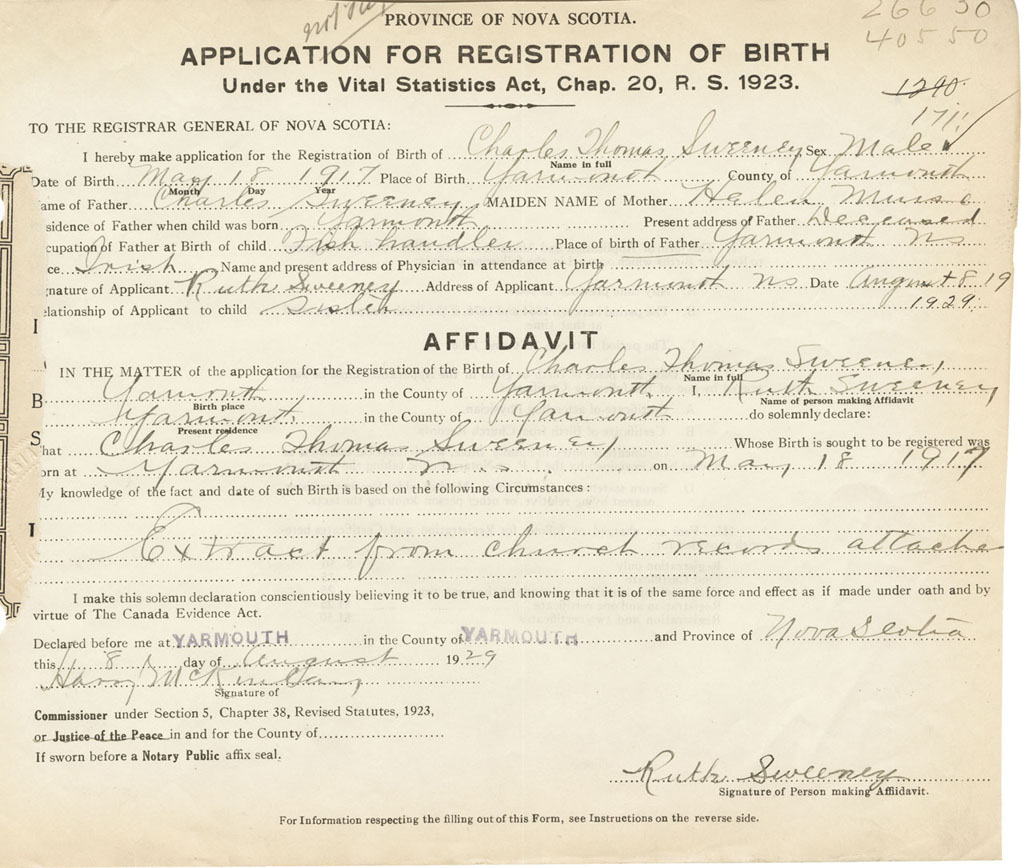 PROVINCE OF NOVA SCOTIA.
26630
40550
APPLICATION FOR REGISTRATION OF BIRTH
Under the Vital Statistics Act, Chap. 20, R. S. 1923.
1290
1711
TO THE REGISTRAR GENERAL OF NOVA SCOTIA:
I hereby make application for the Registration of Birth of Charles Thomas Sweeney Sex Male
Name in full
Date of Birth May 18 1917 Place of Birth Yarmouth County of Yarmouth
Month Day Year
ame of Father Charles Sweeney MAIDEN NAME of Mother Helen
sidence of Father when child was born Yarmouth Present address of Father Deceased
cupation of Father at Birth of child Fish handler Place of birth of Father Yarmouth NS
ce Irish Name and present address of Physician in attendance at birth
gnature of Applicant Ruth Sweeney Address of Applicant Yarmouth NS Date August 8 19
elationship of Applicant to child Sister 1929
I
AFFIDAVIT
IN THE MATTER of the application for the Registration of the Birth of Charles Thomas Sweeney
Name in full
Yarmouth in the County of Yarmouth I, Ruth Sweeney
B
Birth place Name of person making Affidavit
Yarmouth in the County of Yarmouth do solemnly declare:
Present residence
S
hat Charles Thomas Sweeney Whose Birth is sought to be registered was
orn at Yarmouth N.S. on May 18 1917
My knowledge of the fact and date of such Birth is based on the following Circumstances:
I
Extract from church records attache
I make this solemn declaration conscientiously believing it to be true, and knowing that it is of the same force and effect as if made under oath and by
virtue of The Canada Evidence Act.
Declared before me at YARMOUTH in the County of YARMOUTH and Province of Nova Scotia
this 8 day of August 1929
Harry
Signature of
Commissioner under Section 5, Chapter 38, Revised Statutes, 1923,
or Justice of the Peace in and for the County of
If sworn before a Notary Public affix seal.
Ruth Sweeney
Signature of Person making Affidavit.
For Information respecting the filling out of this Form, see Instructions on the reverse side.